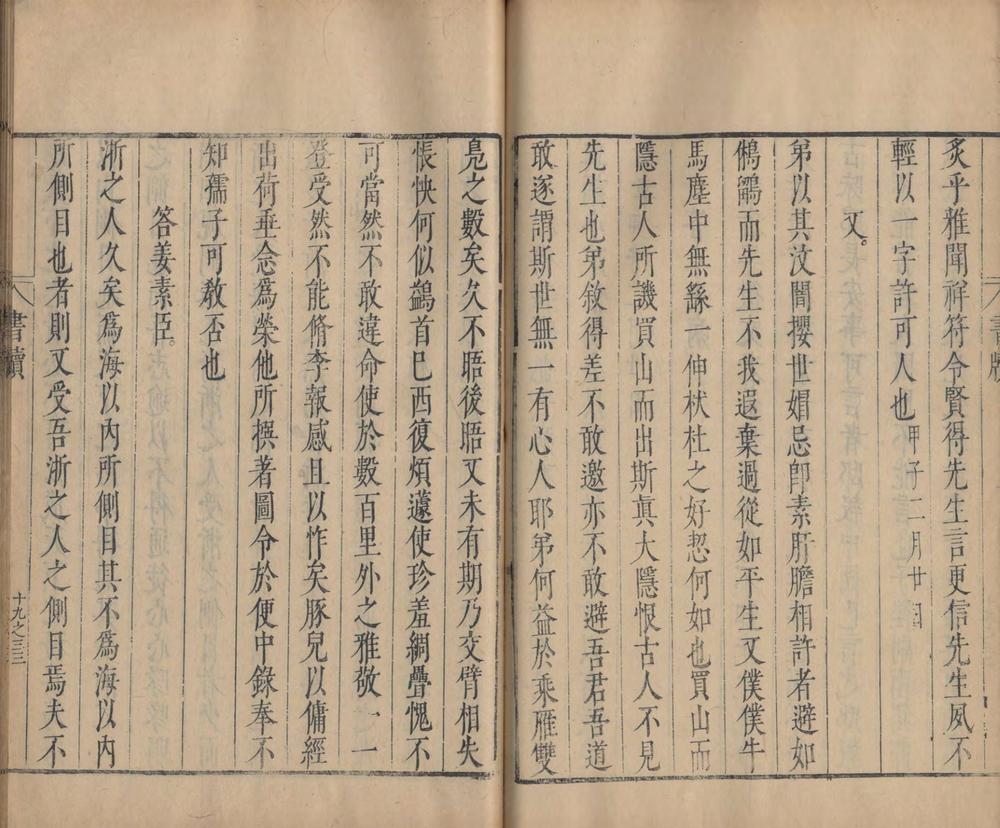 炙乎雅聞祥符令賢得先生言更信先生夙不
輕以一字許可人也甲子二月廿四日
又
弟以其汶闇攖世媢忌卽素肝膽相許者避如
鵂鶹而先生不我遐棄過從如平生又僕僕牛
馬塵中無繇一伸杕杜之好恝何如也買山而
隱古人所譏買山而出斯眞大隱恨古人不見
先生也弟敘得差不敢邀亦不敢避吾君吾道
敢遂謂斯世無一有心人耶弟何益於乘雁雙
鳧之數矣久不晤後晤又未有期乃交臂相失
悵怏何似鷁首巳西復煩蘧使珍羞綢疊愧不
可當然不敢違命使於數百里外之雅敬一一
登受然不能脩李報感且以怍矣豚兒以傭經
出荷垂念爲榮他所撰著圖令於便中錄奉不
知孺子可敎否也
答姜素臣
浙之人久矣爲海以內所側目其不爲海以內
所側目也者則又受吾浙之人之側目焉夫不
書牘
十九之三三